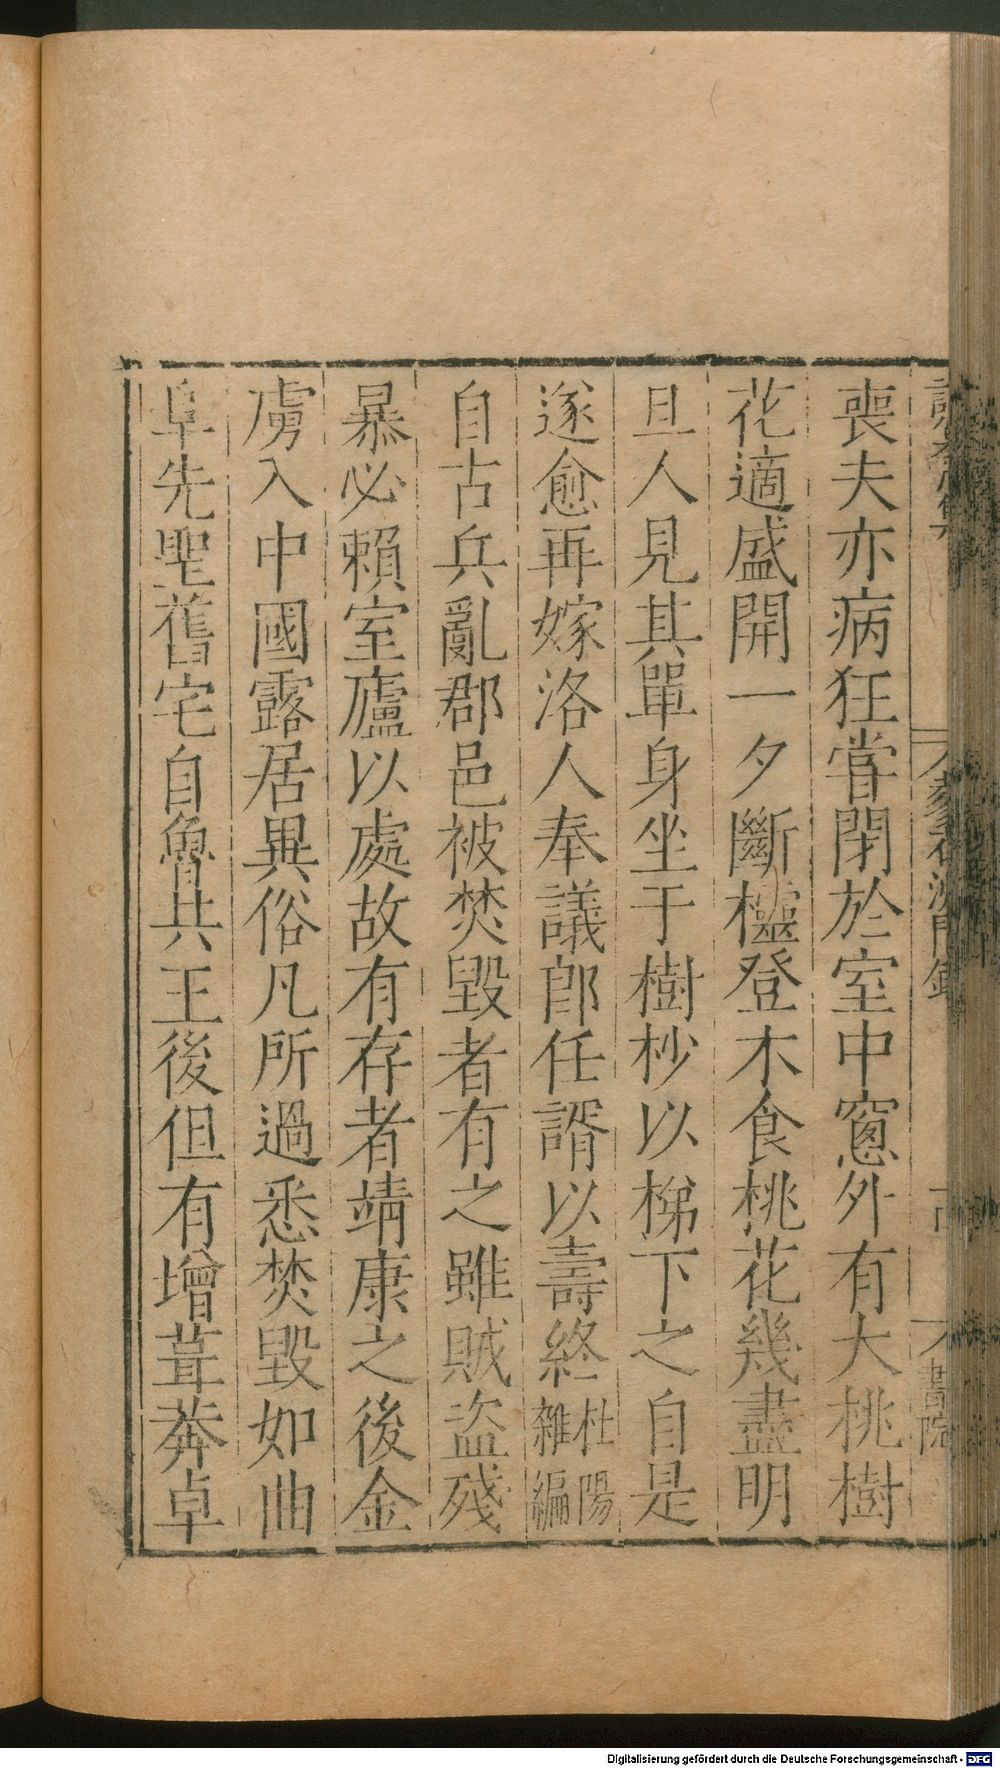 喪夫亦病狂嘗閉於室中窻外有大桃樹
花適盛開一夕斷櫺登木食桃花幾盡明
旦人見其單身坐于樹杪以梯下之自是
遂愈再嫁洛人奉議郎任諝以壽終杜陽雜編
自古兵亂郡邑被焚毀者有之雖賊盗殘
暴必賴室廬以處故有存者靖康之後金
虜入中國露居異俗凡所過悉焚毀如曲
阜先聖舊宅自魯共王後但有增葺莽卓
書院
Digitalisierung gefördert durch die Deutsche Forschungsgemeinschaft - DFG